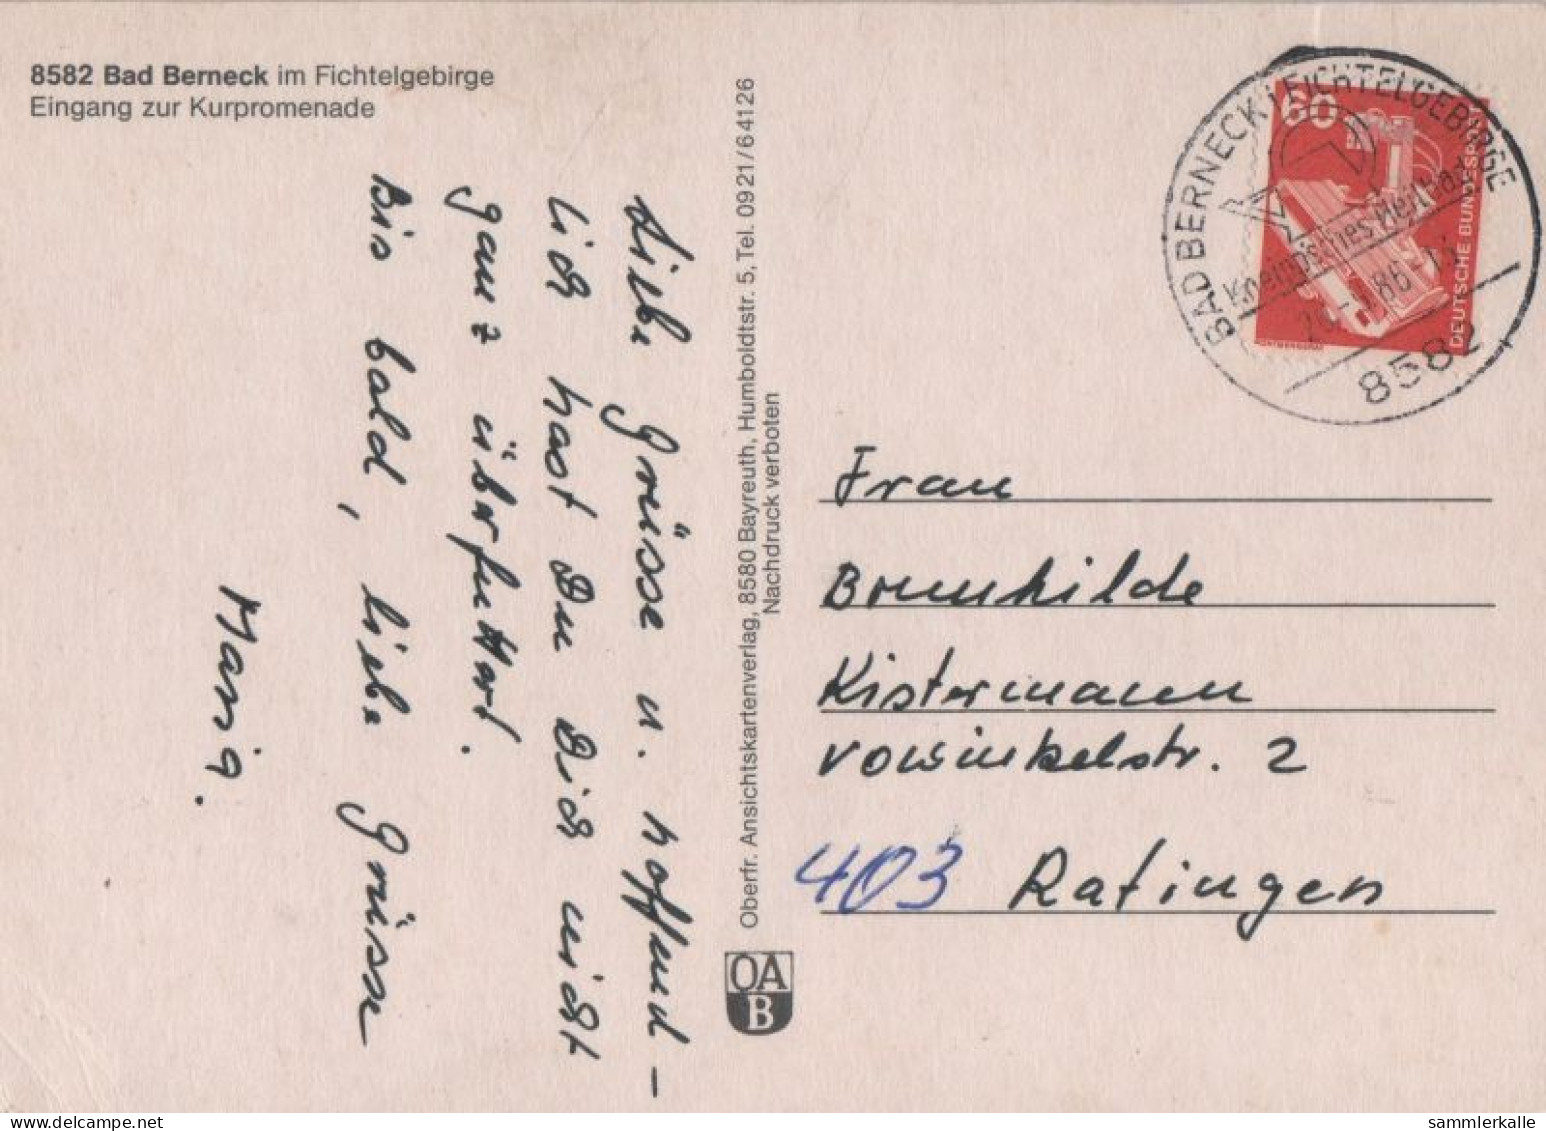 8582 Bad Berneck im Fichtelgebirge
Eingang zur Kurpromenade
Liebe Grüsse u. hoffend-
lich hast Du Dich nicht
ganz überfuttert.
Bis bald, liebe Grüsse
Oberfr. Ansichtskartenverlag, 8580 Bayreuth, Humboldtstr. 5, Tel. 0921/64126
Nachdruck verboten
OA
B
60
DEUTSCHE BUNDESPOST
BAD BERNECK i FICHTELGEBIRGE
Kneippsches Heilbad
8582
Frau
Brunhilde
Kistermann
Vowinkelstr. 2
403 Ratingen
delcampe.net
sammlerkalle